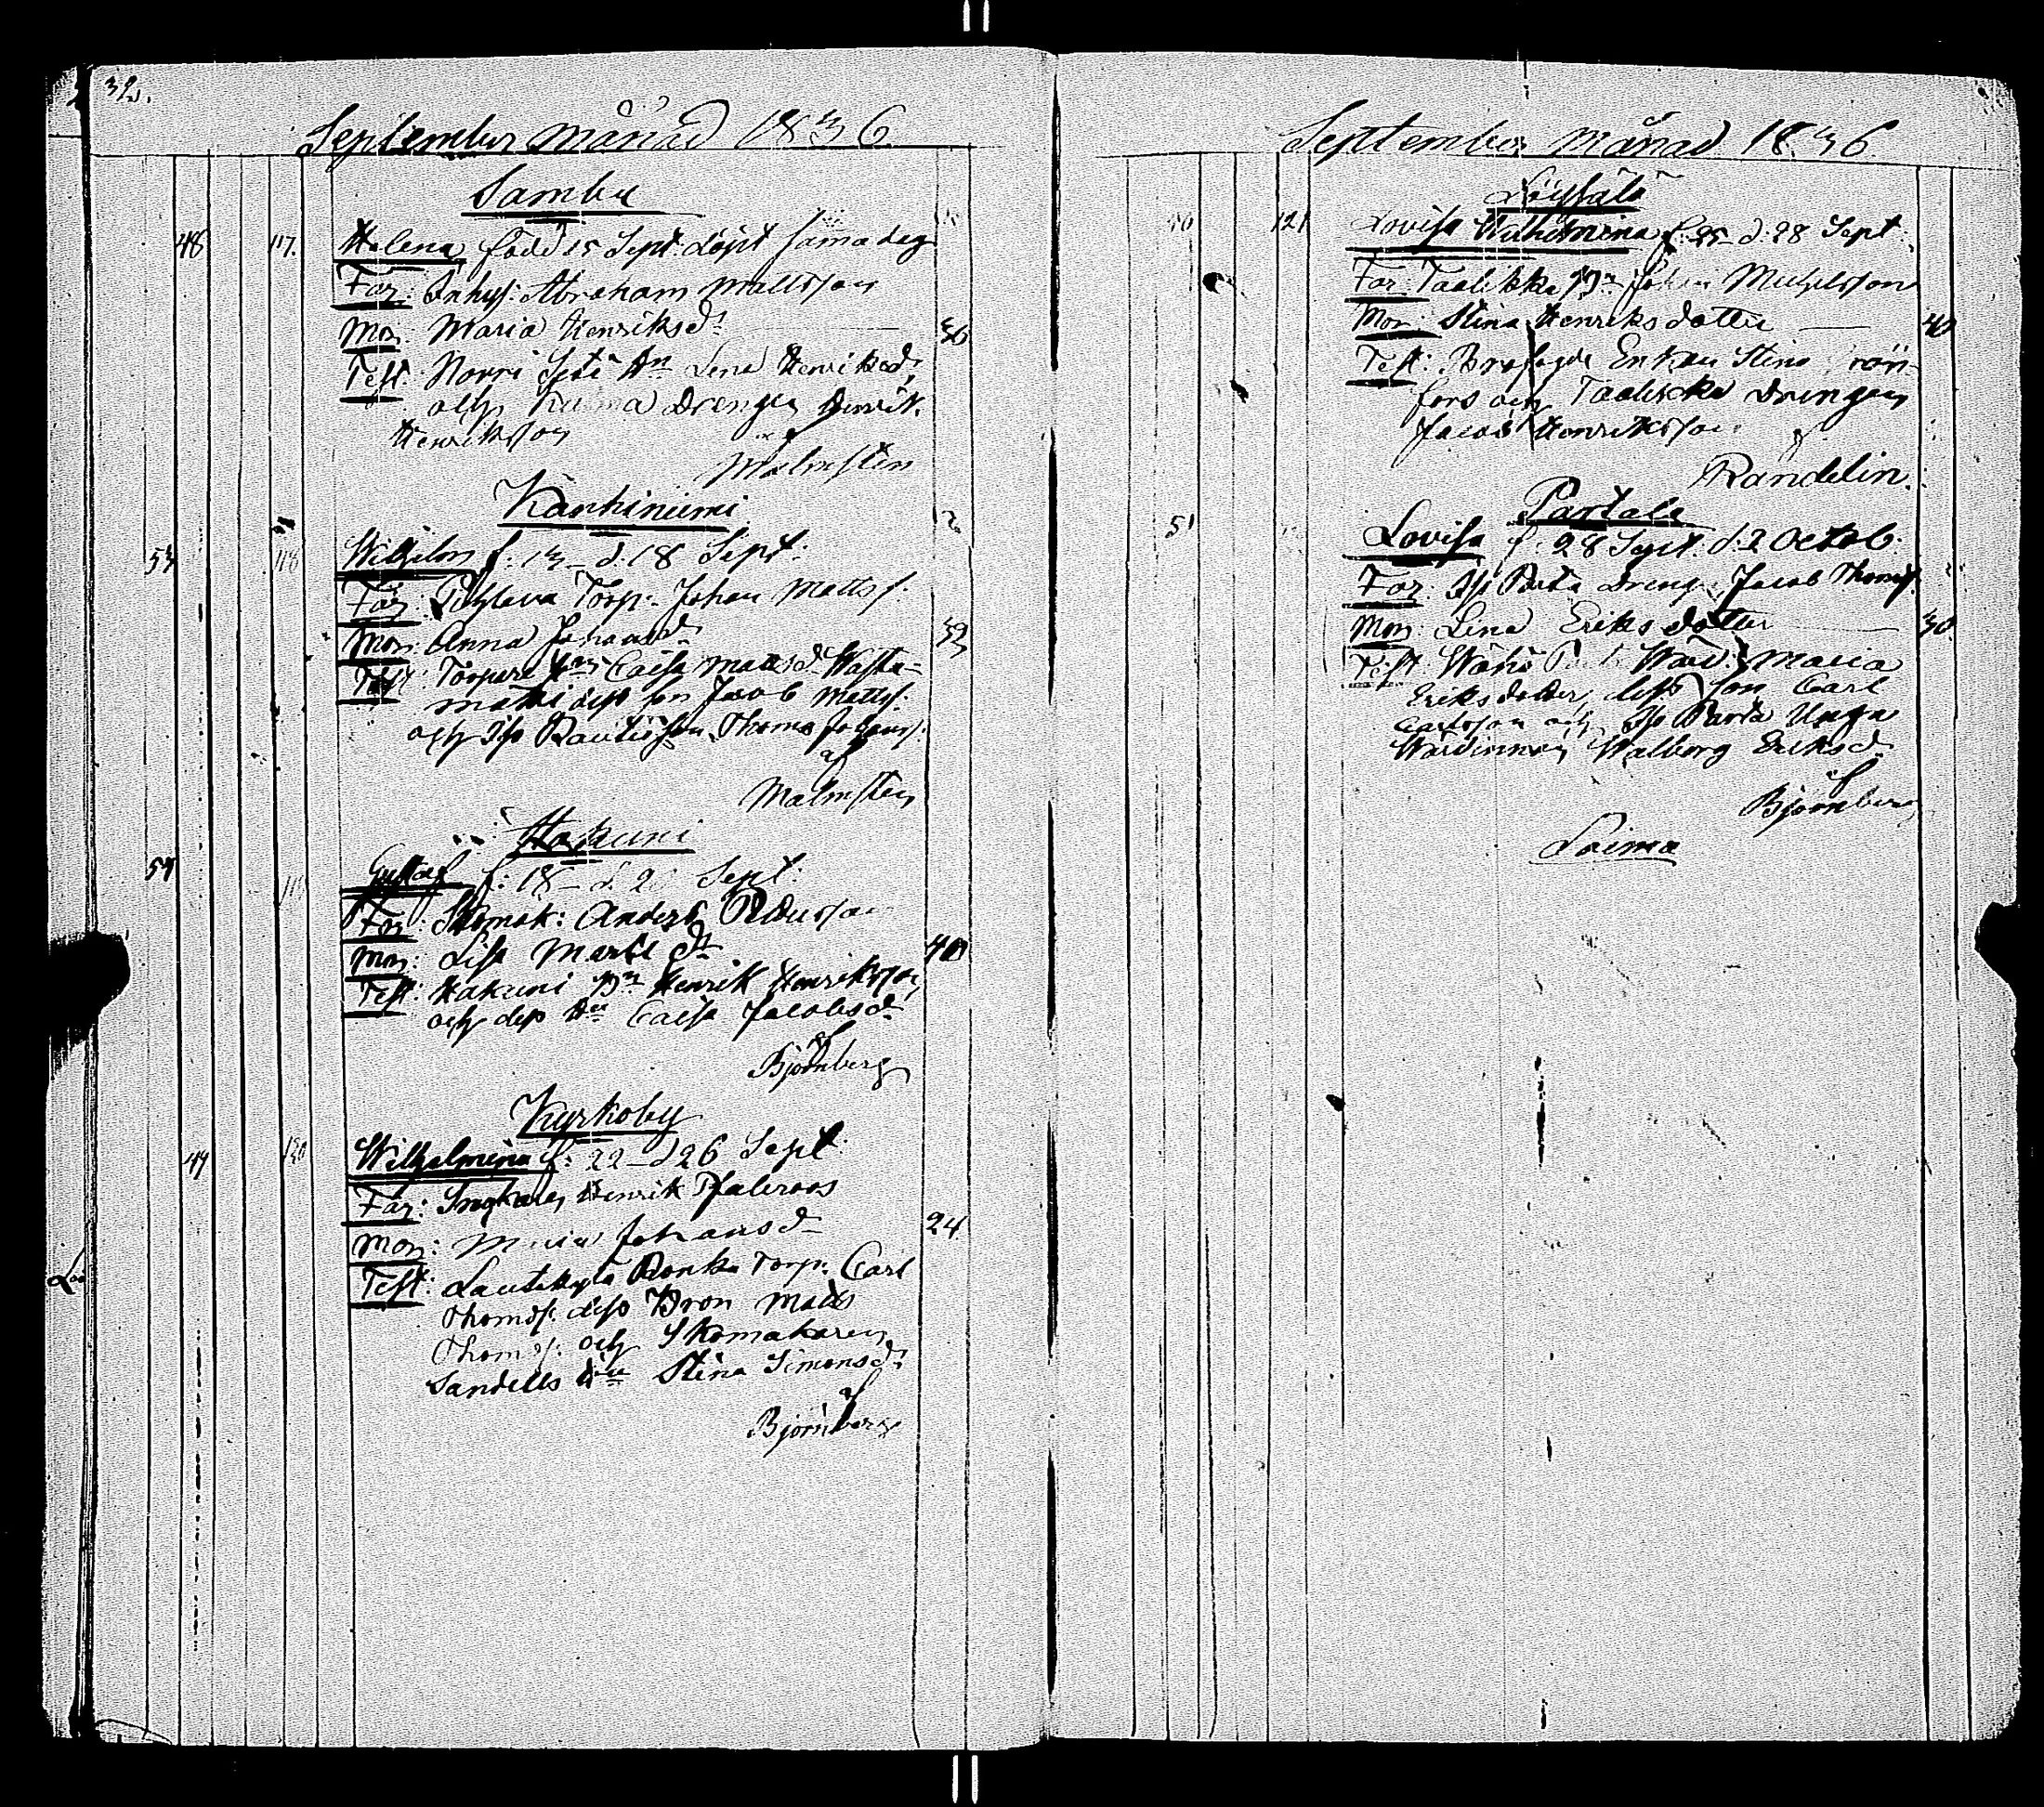 32.
September månad 1836.
Sambu
48 117. Helena född 15 Sept. döpt sama dag
Far: Inhys: Abraham Mattsson
Mor: Maria Henriksdr 36
Test: Norri Hn Lena Henriksdr
och Drengen Henrik
Henriksson
af
Malmsten
Kankiniemi
53 118 Wilhelm f: 13 - d. 18 Sept:
Far: Torp: Johan Mattss.
Mor: Anna Johansdr 33
Test: Torpare Caisa Mattsd
dess son Jacob Mattss.
och Iso Rautio son Thomas Johanss.
af
Malmsten
Hakuni
54 Gustaf f: 18 - d. 2 Sept:
Far: Skomak: Anders
Mor: Lisa dr 40
Test: Hakuni Bn Henrik Henriksson
och dess Hu Caisa Jacobsdr
af
Björnberg
Kyrkoby
49 120 Wilhelmina f: 22 - d 26 Sept:
Far: Henrik Palroos
Mor: Maria Johansd 24
Test: Lautkylä Ronka Torp: Carl
Thomss. dess Bron Matts
Thomss. och Skomakaren
Sandells Hu Stina Simonsdr
af
Björnberg
September månad 1836.
50 121 Lovisa Wilhelmina f: 25 - d: 28 Sept:
Far: Taalikka Bn Johan Michelsson
Mor: Stina Henriksdotter 40
Test: Enkan Stina Rön-
fors och Taalikka Drengen
Jacob Henriksson
af
Randelin.
Partala
51 Lovisa f: 28 Sept. d: 2 Octob:
Far: Iso Parta Dreng Jacob Thomss.
Mor: Lena Eriksdotter 30.
Test: Wähä Maria
Eriksdotter, dess son Carl
Carlsson och Iso Parta Unga
Wärdinnan Walborg Eriksdr
af
Björnberg
Loima